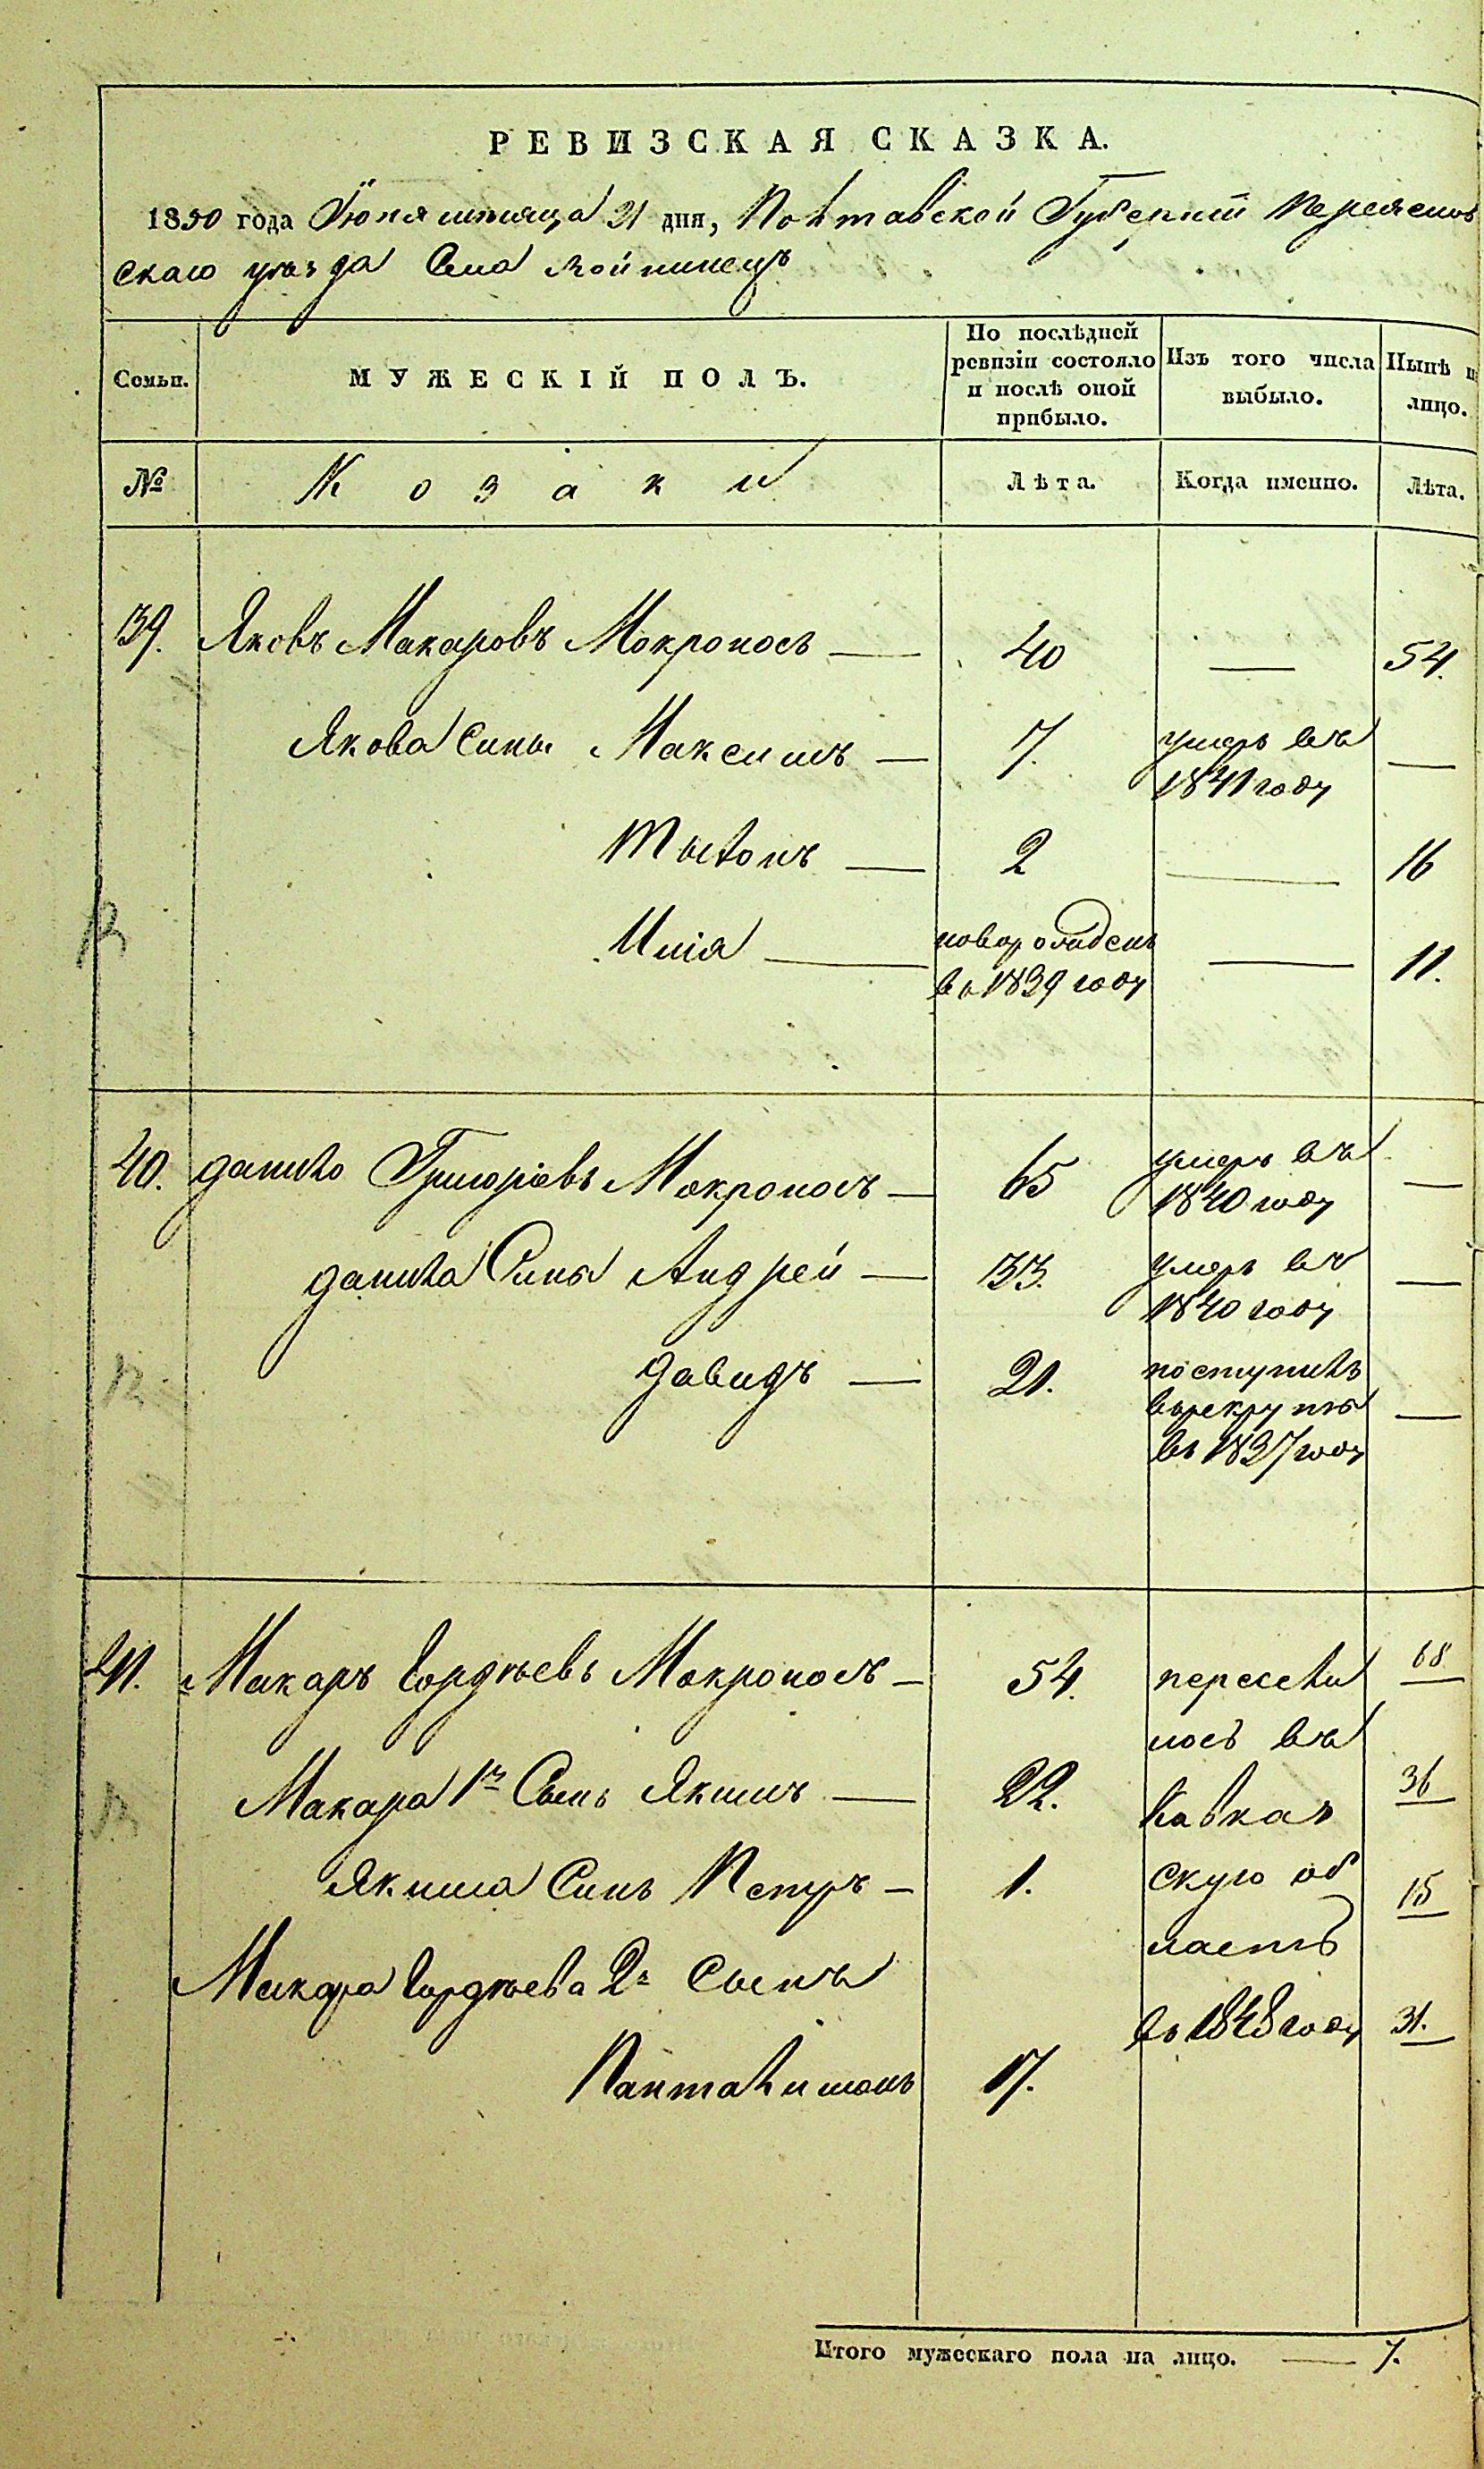 РЕВИЗСКАЯ СКАЗКА.
1850 года Іюня месяца 21 дня, Полтавской Губерніи Переяслов
скаго уезда Села Войнинецъ
Семьи. МУЖЕСКІЙ ПОЛЪ. По послѣдней ревизіи состояло и послѣ оной прибыло. Изъ того числа выбыло. Нынѣ на лицо.
№ Козаки Лѣта. Когда именно. Лѣта.
39. Яковъ Макаровъ Мокроносъ — 40 — 54.
Якова Сины Максимъ — 7. умеръ въ 1841 году —
2 — 16
Илія — новорожденъ въ 1839 году — 11.
40. Данило Григоріевъ Мокроносъ — 65 умеръ въ 1840 году —
Данила Сины Андрей — 33. умеръ въ 1840 году —
Давидъ — 21. поступилъ въ рекруты въ 1837 году —
41. Макаръ Гордѣевъ Мокроносъ — 54. пересели 68
лось въ
Макара 1й Сынъ Якимъ — 22. Кавказ 36
Якима Синъ Петръ — 1. скую об 15
ласть
Макара Гордѣева 2й Сынъ
въ 1848 году 31.
Панталимонъ 17.
Итого мужескаго пола на лицо. — 7.